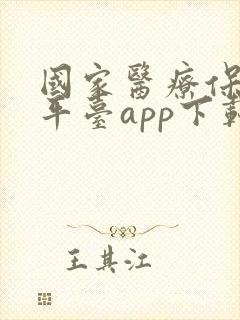 國家醫療保
平臺app下載
王其江